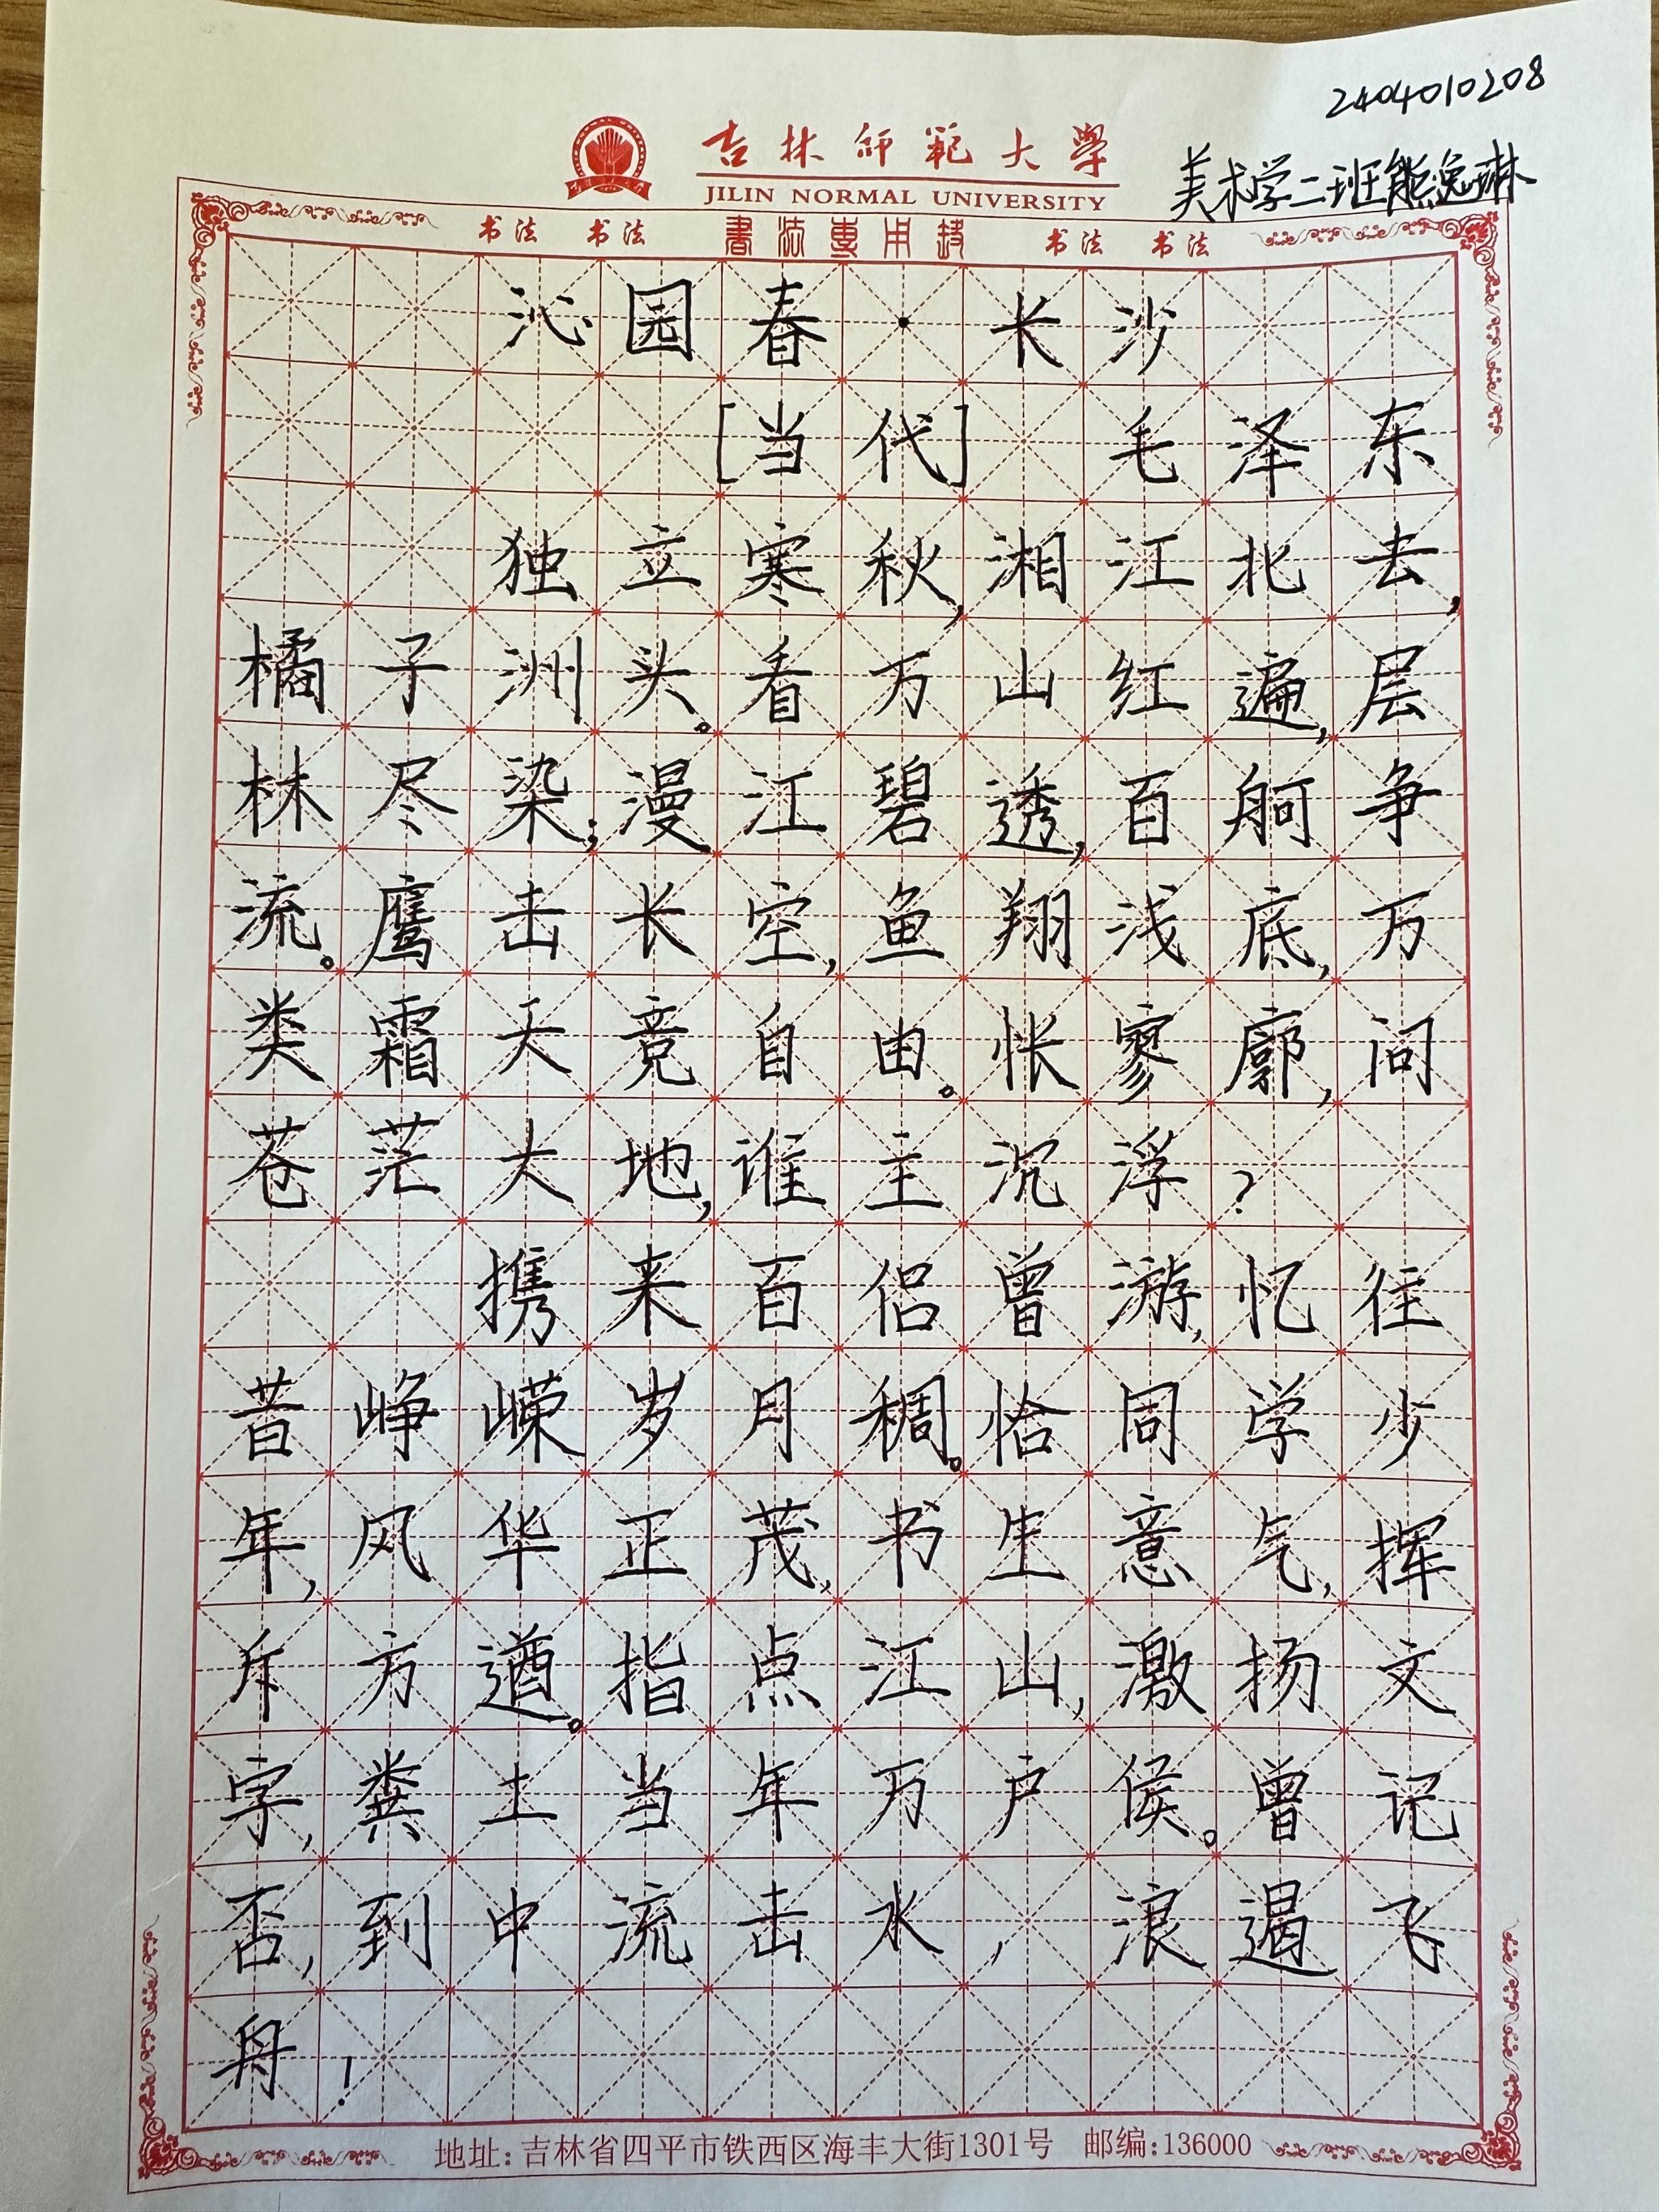 2404010208
吉林师范大学
美术学二班熊逸琳
JILIN NORMAL UNIVERSITY
书法 书法 書法專用紙 书法 书法
沁园春·长沙
[当代] 毛泽东
独立寒秋,湘江北去,
橘子洲头。看万山红遍,层
林尽染;漫江碧透,百舸争
流。鹰击长空,鱼翔浅底,万
类霜天竞自由。怅寥廓,问
苍茫大地,谁主沉浮?
携来百侣曾游,忆往
昔峥嵘岁月稠。恰同学少
年,风华正茂,书生意气,挥
斥方遒。指点江山,激扬文
字,粪土当年万户侯。曾记
否,到中流击水,浪遏飞
舟!
地址:吉林省四平市铁西区海丰大街1301号 邮编:136000